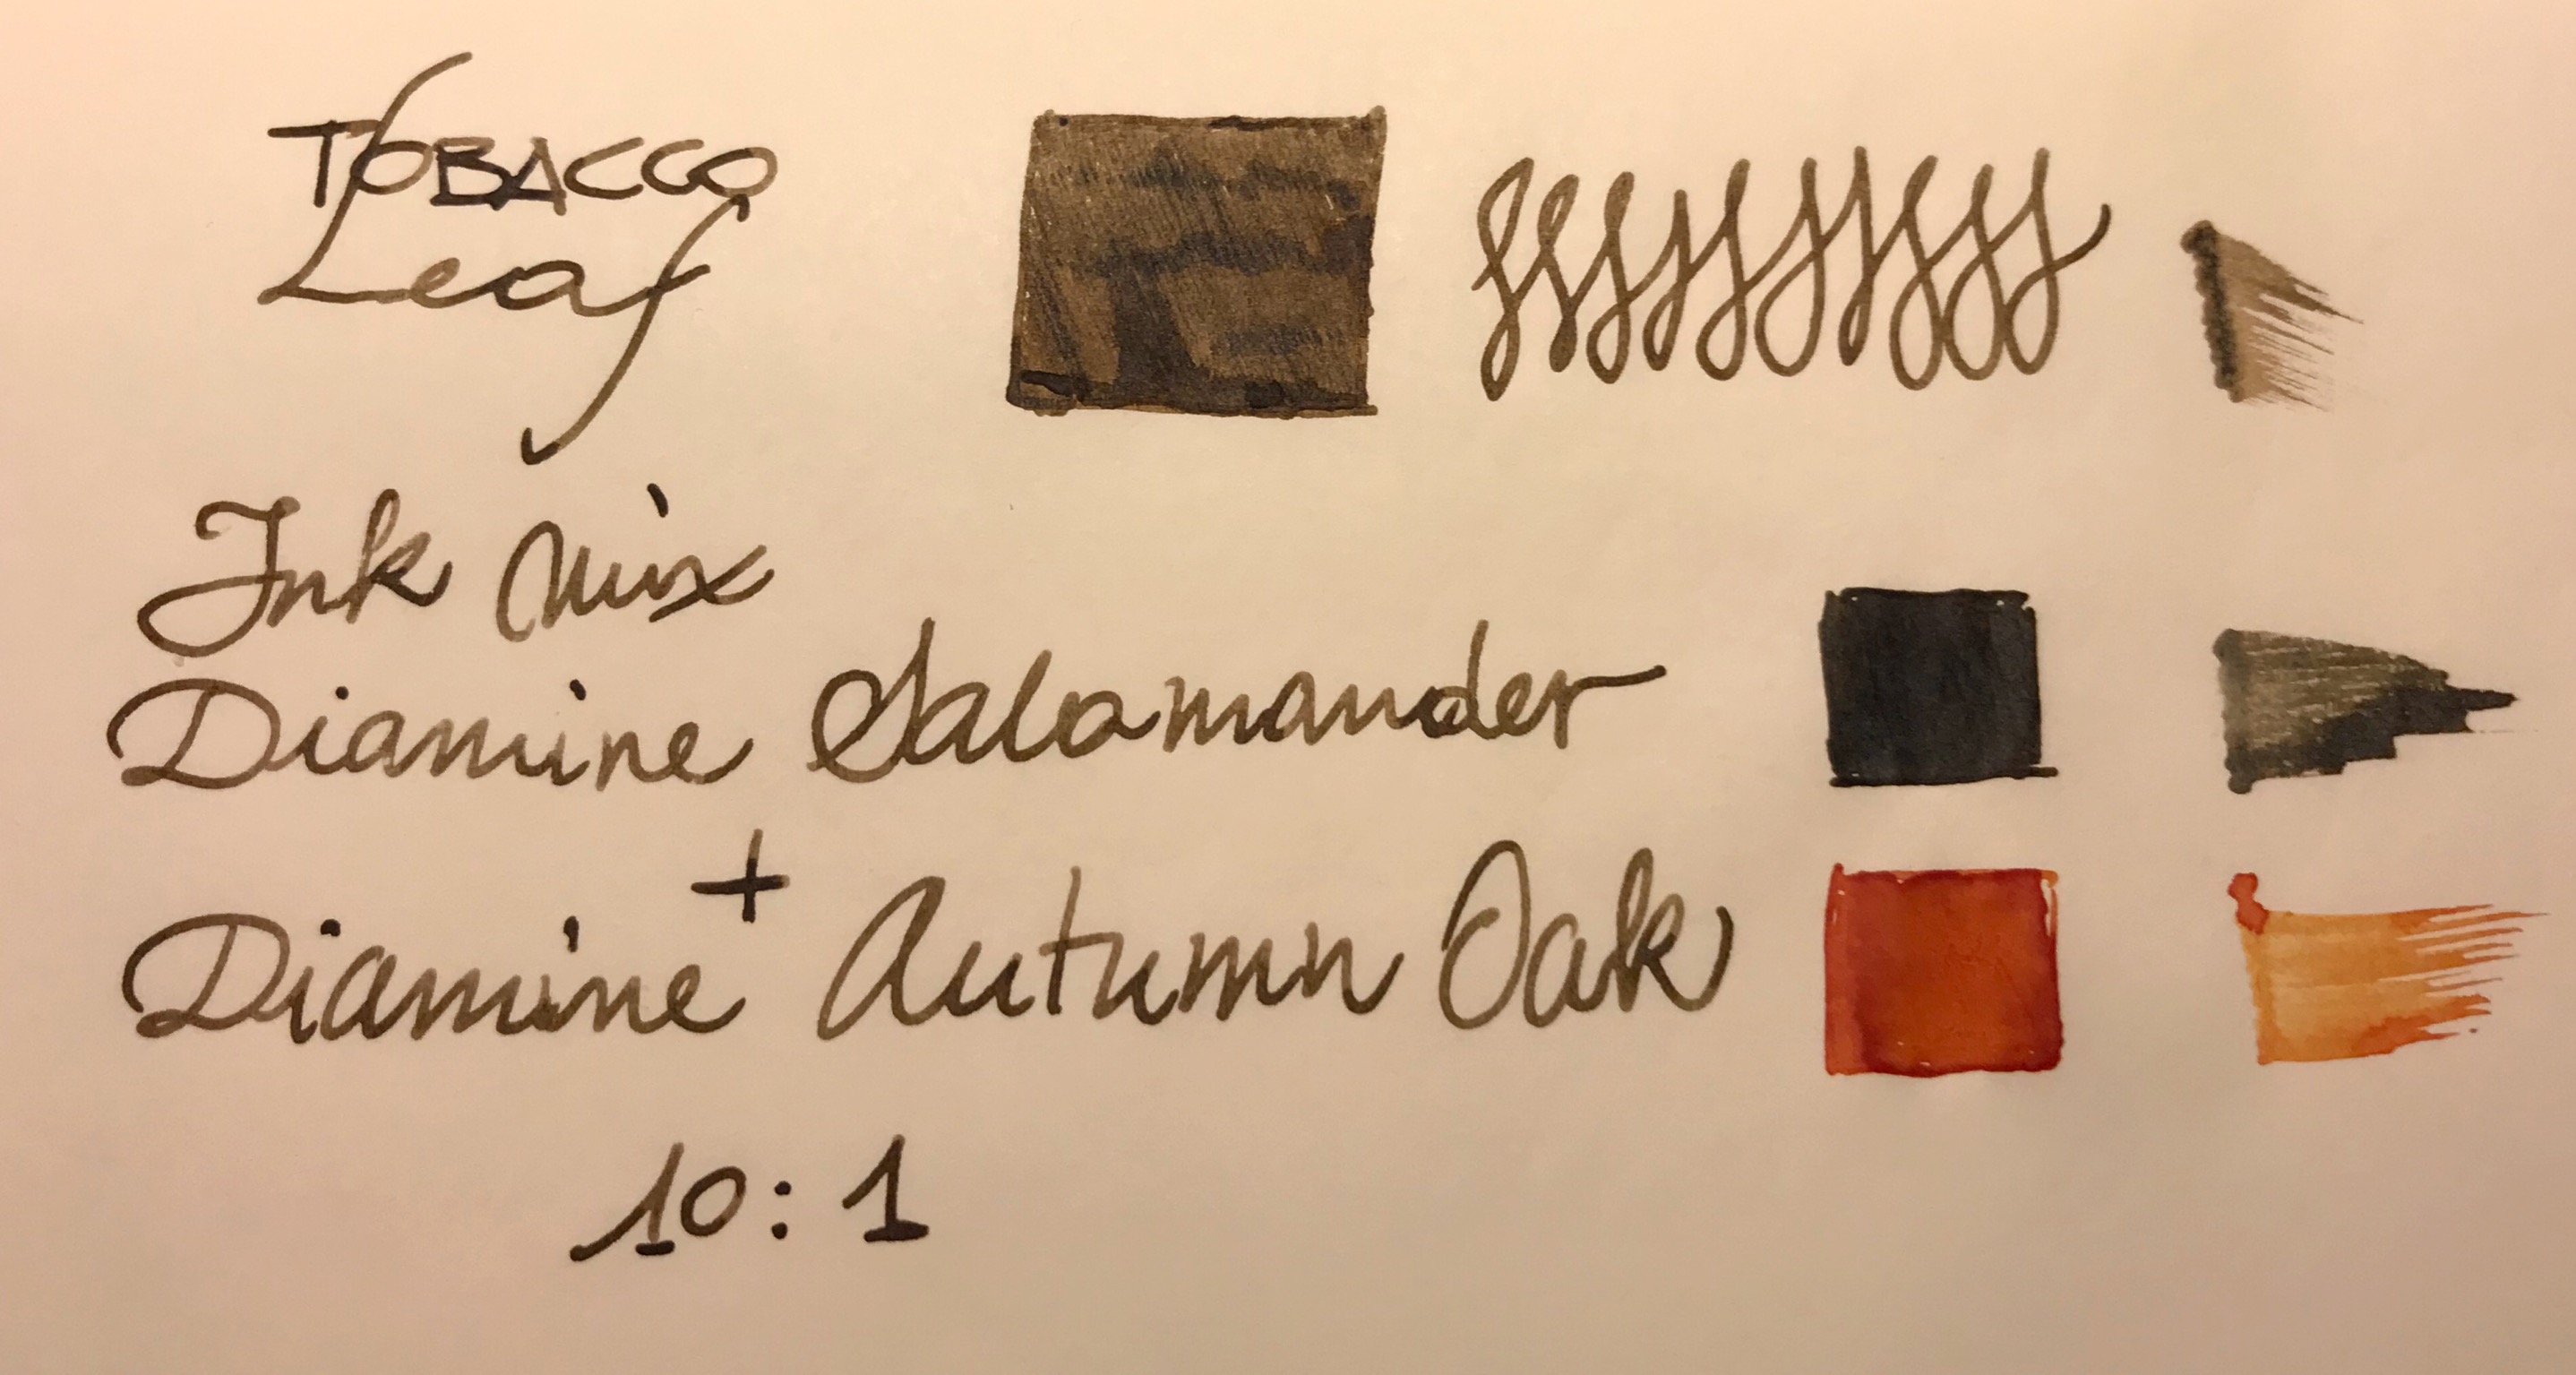 TOBACCO
Leaf
Ink Mix
Diamine Salamander
+
Diamine Autumn Oak
10:1